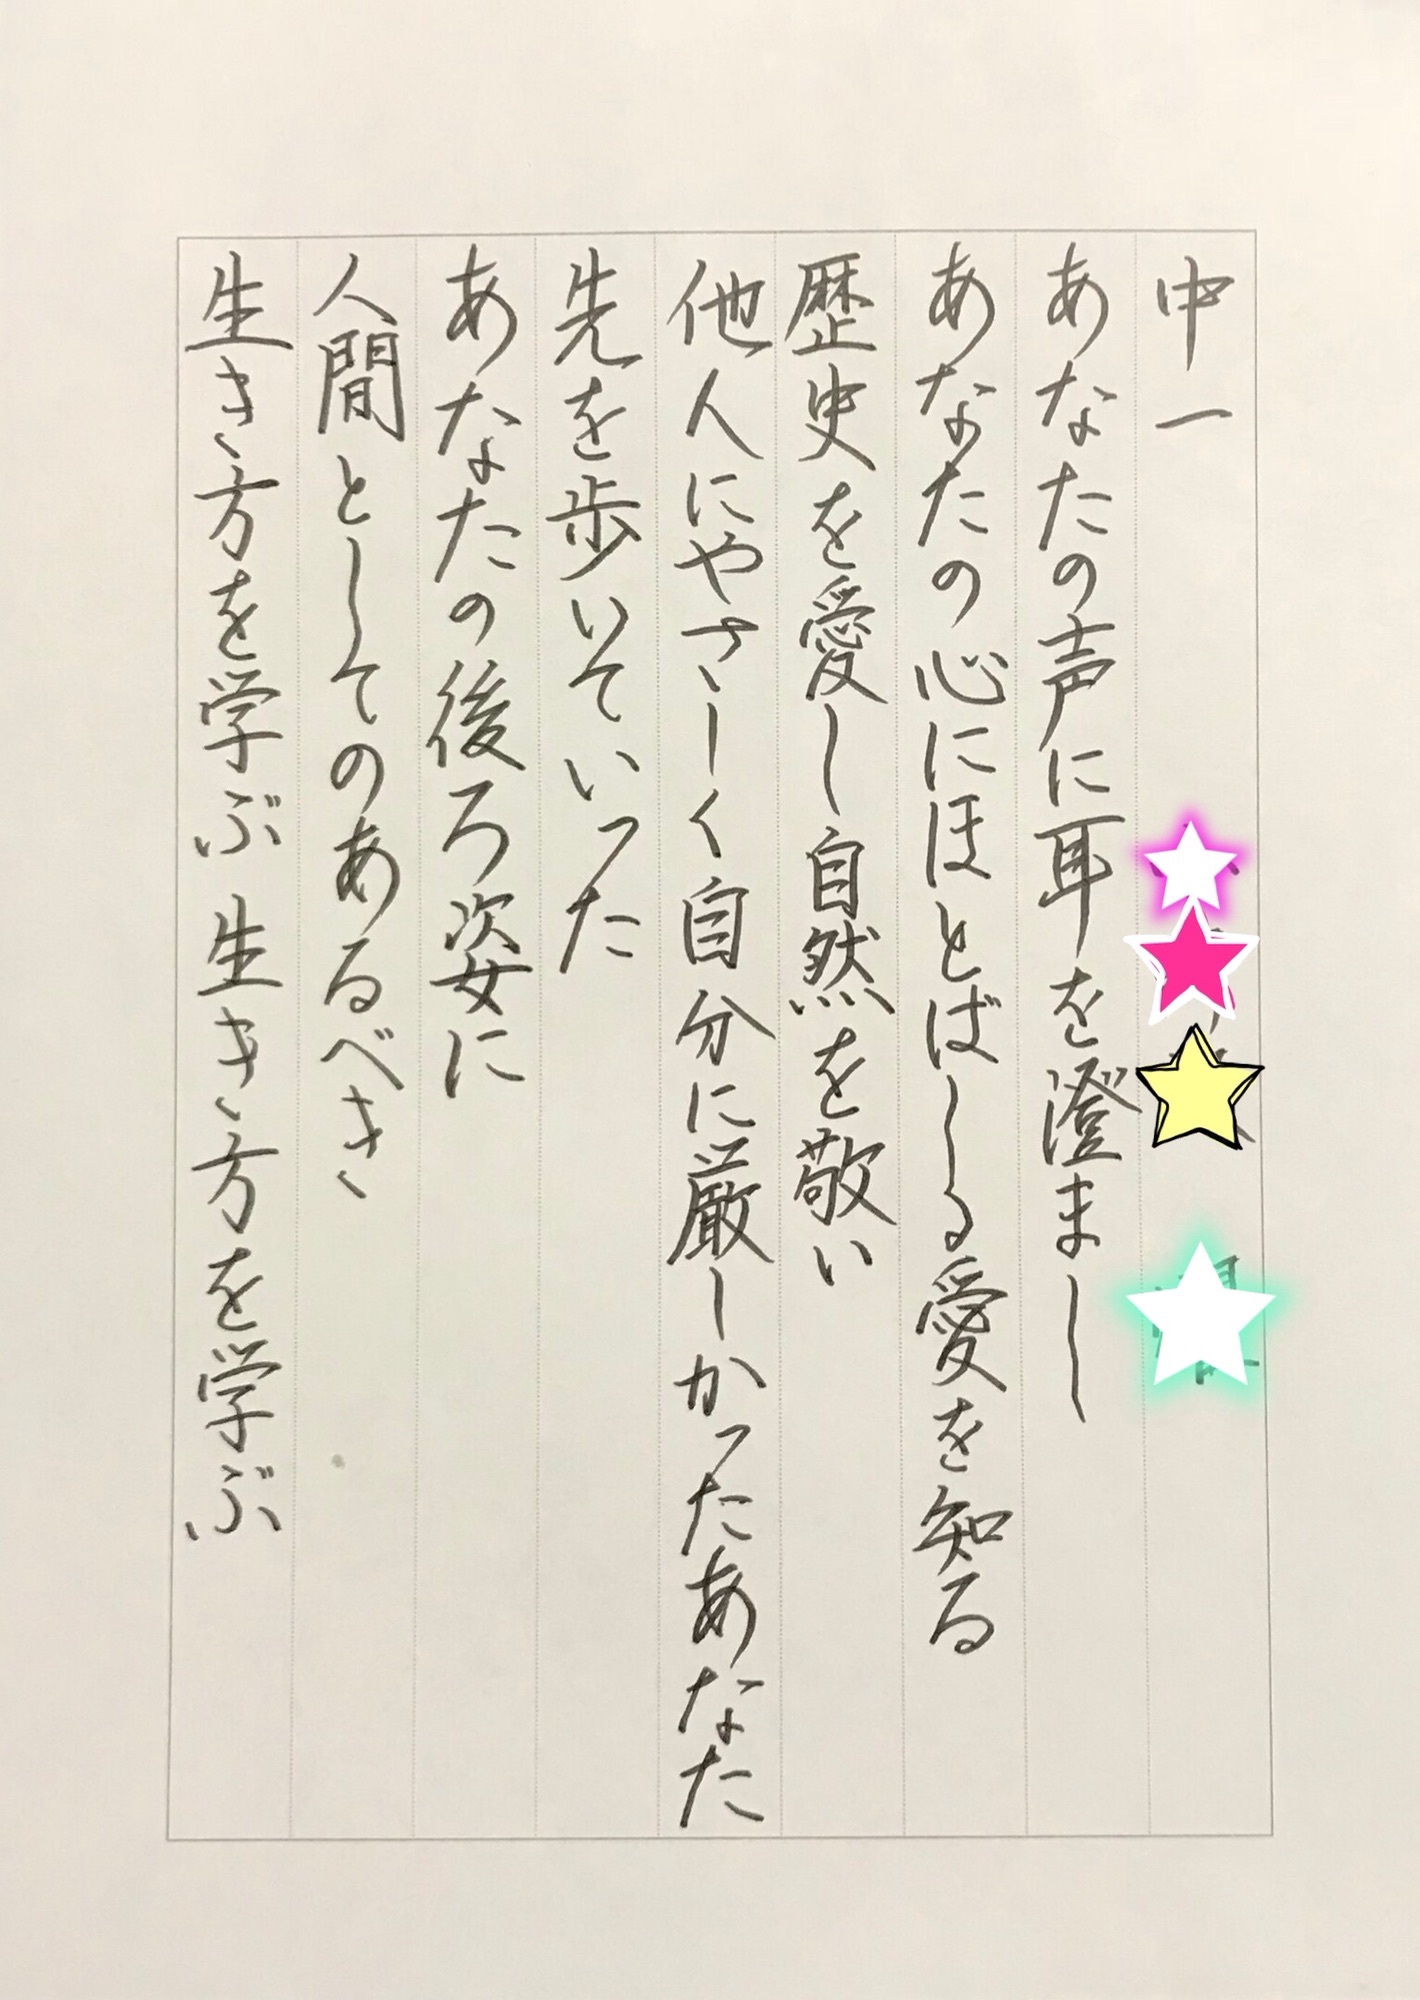 中一
あなたの声に耳を澄まし
あなたの心にほとばしる愛を知る
歴史を愛し自然を敬い
他人にやさしく自分に厳しかったあなた
先を歩いていった
あなたの後ろ姿に
人間としてのあるべき
生き方を学ぶ生き方を学ぶ